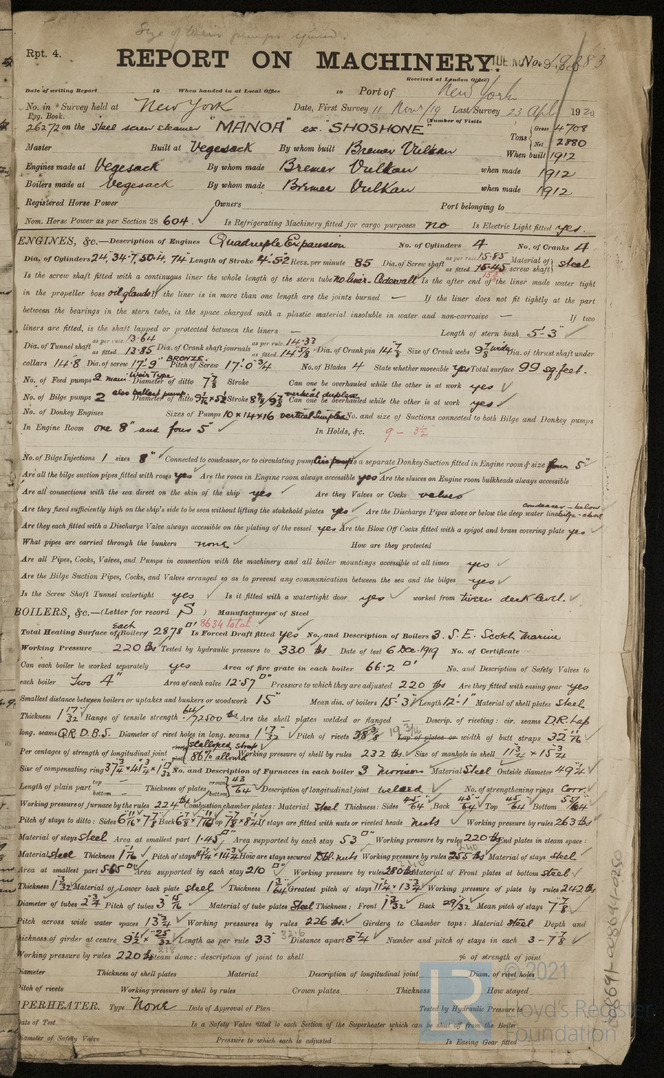 Size of Weir pumps required.
Rpt. 4.
REPORT ON MACHINERY.
TUE. NOV.
Received at London Office
Date of writing Report 19 When handed in at Local Office 19 Port of New York
No. in Survey held at New York Date, First Survey 11 Nov/19 Last Survey 23 Apl 1920
Reg. Book. (Number of Visits
26272 on the Steel screw steamer "MANOA" ex "SHOSHONE" Tons Gross 4708 Net 2880
Master Built at Vegesack By whom built Bremer Vulkan When built 1912
Engines made at Vegesack By whom made Bremer Vulkan when made 1912
Boilers made at Vegesack By whom made Bremer Vulkan when made 1912
Registered Horse Power Owners Port belonging to
Nom. Horse Power as per Section 28 604. Is Refrigerating Machinery fitted for cargo purposes no Is Electric Light fitted yes.
ENGINES, &c.—Description of Engines Quadruple Expansion No. of Cylinders 4 No. of Cranks 4
Dia. of Cylinders Length of Stroke Revs. per minute 85 Dia. of Screw shaft as per rule 15.85 as fitted Material of screw shaft steel
Is the screw shaft fitted with a continuous liner the whole length of the stern tube no liner. Is the after end of the liner made water tight
in the propeller boss oil gland If the liner is in more than one length are the joints burned — If the liner does not fit tightly at the part
between the bearings in the stern tube, is the space charged with a plastic material insoluble in water and non-corrosive — If two
liners are fitted, is the shaft lapped or protected between the liners — Length of stern bush 5'-3"
Dia. of Tunnel shaft as per rule 13.64 as fitted 13.85 Dia. of Crank shaft journals as per rule 14.33 as fitted 14 5/8 Dia. of Crank pin 14 7/8 Size of Crank webs Dia. of thrust shaft under
collars 14.8 Dia. of screw 17'-9" BRONZE. Pitch of Screw 17'-0 3/4 No. of Blades 4 State whether moveable yes Total surface 99 sq feet.
No. of Feed pumps 2 main Weir Type Diameter of ditto 7 7/8 Stroke Can one be overhauled while the other is at work yes
No. of Bilge pumps 2 also ballast pump Diameter of ditto Stroke vertical duplex Can one be overhauled while the other is at work yes
No. of Donkey Engines Sizes of Pumps 10 x 14 x 16 vertical simplex No. and size of Suctions connected to both Bilge and Donkey pumps
In Engine Room one 8" and four 5" In Holds, &c. 9 - 3 1/2
No. of Bilge Injections 1 sizes 8" Connected to condenser, or to circulating pump Is a separate Donkey Suction fitted in Engine room & size four 5"
Are all the bilge suction pipes fitted with roses yes Are the roses in Engine room always accessible yes Are the sluices on Engine room bulkheads always accessible
Are all connections with the sea direct on the skin of the ship yes Are they Valves or Cocks valves
Are they fixed sufficiently high on the ship's side to be seen without lifting the stokehold plates yes Are the Discharge Pipes above or below the deep water line condenser - below bilge - above
Are they each fitted with a Discharge Valve always accessible on the plating of the vessel yes Are the Blow Off Cocks fitted with a spigot and brass covering plate yes
What pipes are carried through the bunkers none How are they protected
Are all Pipes, Cocks, Valves, and Pumps in connection with the machinery and all boiler mountings accessible at all times yes
Are the Bilge Suction Pipes, Cocks, and Valves arranged so as to prevent any communication between the sea and the bilges yes
Is the Screw Shaft Tunnel watertight yes Is it fitted with a watertight door yes worked from tween deck level.
BOILERS, &c.—(Letter for record S) Manufacturers of Steel
Total Heating Surface of Boilers Each 2878 8634 total Is Forced Draft fitted yes No. and Description of Boilers 3 S.E. Scotch Marine
Working Pressure 220 lbs Tested by hydraulic pressure to 330 lbs Date of test 6 Dec. 1919 No. of Certificate
Can each boiler be worked separately yes Area of fire grate in each boiler 66.2 No. and Description of Safety Valves to
each boiler Two 4" Area of each valve 12.57 Pressure to which they are adjusted 220 lbs Are they fitted with easing gear yes
Smallest distance between boilers or uptakes and bunkers or woodwork 15" Mean dia. of boilers 15'-3" Length 12'-1" Material of shell plates Steel
Thickness 1 17/32 Range of tensile strength Are the shell plates welded or flanged Descrip. of riveting: cir. seams D.R. Lap
long. seams Q.R.D.B.S. Diameter of rivet holes in long. seams 1 17/32 Pitch of rivets Lap of plates or width of butt straps
Per centages of strength of longitudinal joint scalloped strap 86% allowed Working pressure of shell by rules 232 lbs Size of manhole in shell 11 3/4 x 15 3/4
Size of compensating ring No. and Description of Furnaces in each boiler 3 Morison Material Steel Outside diameter 49 1/4
Length of plain part top bottom Thickness of plates 43/64 Description of longitudinal joint welded No. of strengthening rings Corr.
Working pressure of furnace by the rules 224 lbs Combustion chamber plates: Material Steel Thickness: Sides 45/64 Back 45/64 Top 45/64 Bottom
Pitch of stays to ditto: Sides Back Top If stays are fitted with nuts or riveted heads nuts Working pressure by rules 263 lbs
Material of stays Steel Area at smallest part 1.45 Area supported by each stay 53 Working pressure by rules 220 lbs End plates in steam space:
Material steel Thickness Pitch of stays How are stays secured Dbl. nuts Working pressure by rules 255 lbs Material of stays steel
Area at smallest part Area supported by each stay 210 Working pressure by rules Material of Front plates at bottom steel
Thickness Material of Lower back plate steel Thickness Greatest pitch of stays 11 1/4 x 13 3/4 Working pressure of plate by rules 242 lbs
Diameter of tubes 2 3/4 Pitch of tubes Material of tube plates Steel Thickness: Front Back 29/32 Mean pitch of stays 7 7/8
Pitch across wide water spaces 13 3/4 Working pressures by rules 226 lbs. Girders to Chamber tops: Material steel Depth and
thickness of girder at centre Length as per rule 33 Distance apart 8 3/4 Number and pitch of stays in each 3 - 7 7/8
Working pressure by rules 220 lbs Steam dome: description of joint to shell % of strength of joint
Diameter Thickness of shell plates Material Description of longitudinal joint Diam. of rivet holes
Pitch of rivets Working pressure of shell by rules Crown plates Thickness How stayed
UPERHEATER. Type None Date of Approval of Plan Tested by Hydraulic Pressure to
Date of Test Is a Safety Valve fitted to each Section of the Superheater which can Boiler
Diameter of Safety Valve Pressure to which each is adjusted Is Easing Gear fitted
© 2021
LR
Lloyd's Register
Foundation